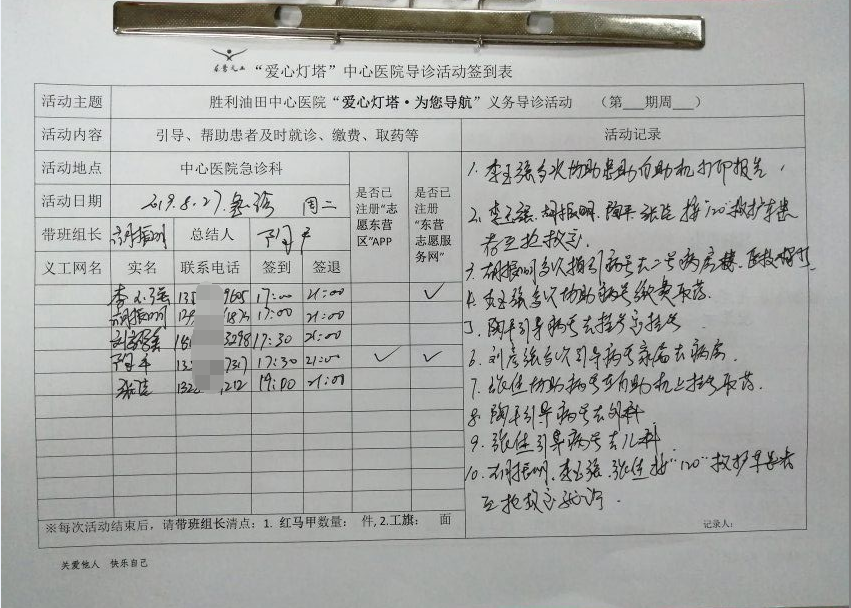 “爱心灯塔”中心医院导诊活动签到表
活动主题 胜利油田中心医院“爱心灯塔·为您导航”义务导诊活动 （第___期周___）
活动内容 引导、帮助患者及时就诊、缴费、取药等 活动记录
活动地点 中心医院急诊科
活动日期 2019.8.27. 周二
带班组长 胡振明 总结人 陶平
是否已注册“志愿东营区”APP
是否已注册“东营志愿服务网”
义工网名 实名 联系电话 签到 签退
李玉强 135 9605 17:00 21:00 ✓
胡振明 17:00 21:00
3298 17:30 21:00
陶平 7317 17:30 21:00 ✓ ✓
张佳 132 1212 19:00 21:00
1. 李玉强多次协助患助自助机打印报告，
2. 李玉强、胡振明、陶平、张佳接“120”救护车患
者至抢救室。
3. 胡振明多次指引病号去二号病房楼、医技楼
4. 李玉强多次协助病号缴费取药.
5. 陶平引导病号去挂号室挂号
6. 刘 多次引导病号家属去病房.
7. 张佳协助病号在自助机上挂号取药.
8. 陶平引导病号去外科
9. 张佳引导病号去儿科
10. 胡振明、李玉强、张佳接“120”救护车患者
至抢救室
※每次活动结束后，请带班组长清点：1. 红马甲数量： 件, 2.工旗： 面
记录人：
关爱他人 快乐自己